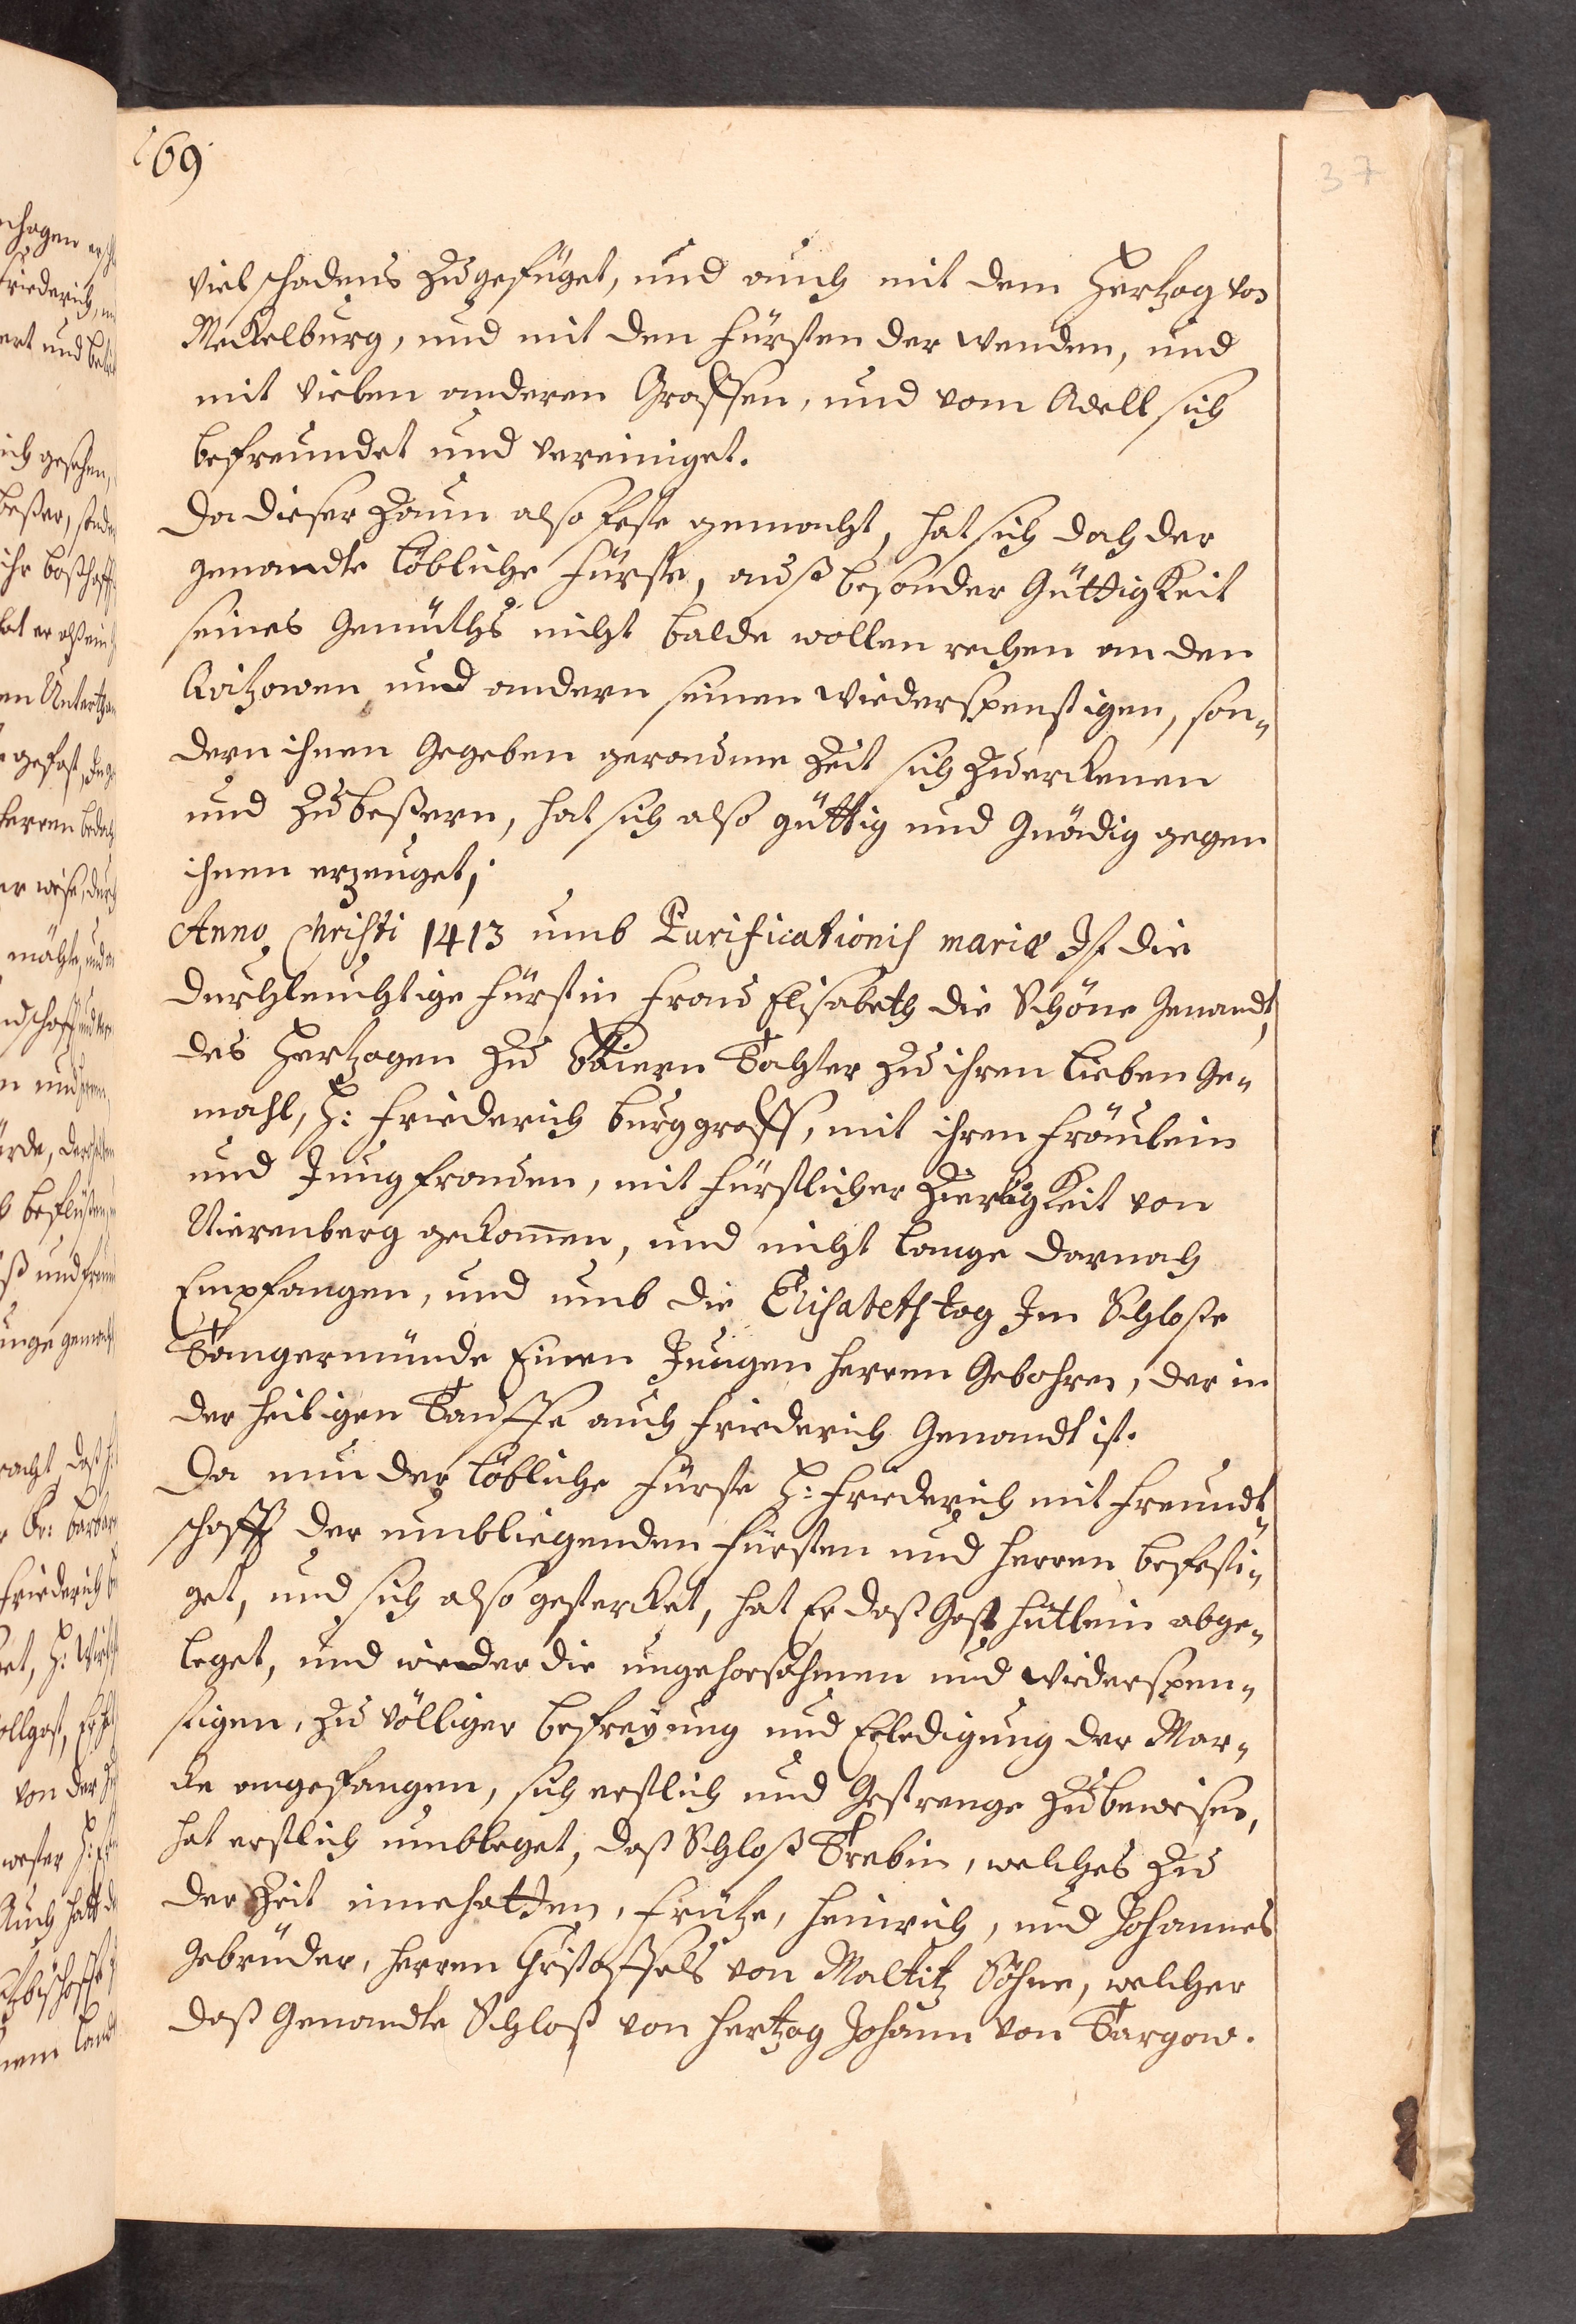 69
37
viel schadens zugefüget, und auch mit dem Hertzog von
Meckelburg, und mit den Fürsten der wenden, und
mit vielen anderen Graffen, und vom Adell sich
befreundet und vereiniget.
Da dieser Zaun also feste gemacht, hat sich doch der
genandte löbliche Fürste, auß besonder Güttigkeit
seines Gemüths nicht balde wollen rechen an den
Qvitzowen und andern seinen wiederspenstigen, son„
dern ihnen Gegeben geraume Zeit sich zuerkenen
und zubeßern, hat sich also güttig und Gnädig gegen
ihnen erzeuget;
Anno Christi 1413 umb Purificationis mariæ Ist die
durchleuchtige Fürstin Frau Elisabeth die Schöne Genandt,
des Hertzogen zu Baiern Tochter zu ihren lieben Ge„
mahl, H: Friederich burggraff, mit ihren Fräulein
und Jungfrauen, mit Fürstlicher Zierligkeit von
Nierenberg gekom̄en, und nicht lange darnach
Empfangen, und umb die Elisabeth tag Im Schloße
Tangermünde Einen Jungen herren Gebohren, der in
der heiligen Tauffe auch Friederich Genandt ist.
Da nun der löbliche Fürste H: Friederich mit Freundt„
schafft der umbliegenden Fürsten und herren befesti„
get, und sich also gestercket, hat Er daß Gast hütlein abge„
leget, und wieder die ungehorsahmen und wiederspen„
stigen, zu völliger befreyung und Erledigung der Mar„
cke angefangen, sich ernstlich und Gestrenge zubeweisen,
hat erstlich umbleget, daß Schloß Trebin, welches zu
der Zeit innehatten, Fritze, Heinrich, und Johannes
Gebrüder, herren Christoffels von Maltitz Söhne, welcher
daß Genandte Schloß von Hertzog Johann von Targow.